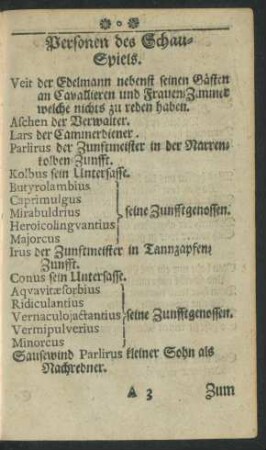 Personen des Schau-
Spiels.
Veit der Edelmann nebenst seinen Gästen
an Cavallieren und Frauen-Zimmer
welche nichts zu reden haben.
Aschen der Verwalter.
Lars der Cammerdiener.
Parlirus der Zunftmeister in der Narren-
kolben-Zunfft.
Kolbus sein Untersasse.
Butyrolambius
Caprimulgus
Mirabuldrius seine Zunfftgenossen.
Heroicolingvantius
Majorcus
Irus der Zunftmeister in Tannzapfen-
Zunfft.
Conus sein Untersasse.
Aqvavitæsorbius
Ridiculantius
Vernaculojactantius seine Zunfftgenossen.
Vermipulverius
Minorcus
Sausewind Parlirus kleiner Sohn als
Nachredner.
A 3 Zum